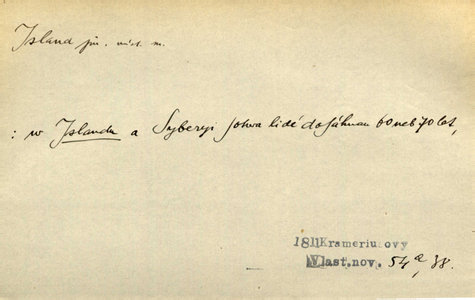 Island jm. míst. m.
: w Islandu a Syberyi sotwa lidé dosáhnau 60 neb 70 let,
1811 Krameriusovy
Vlast. nov. 54a, 38.